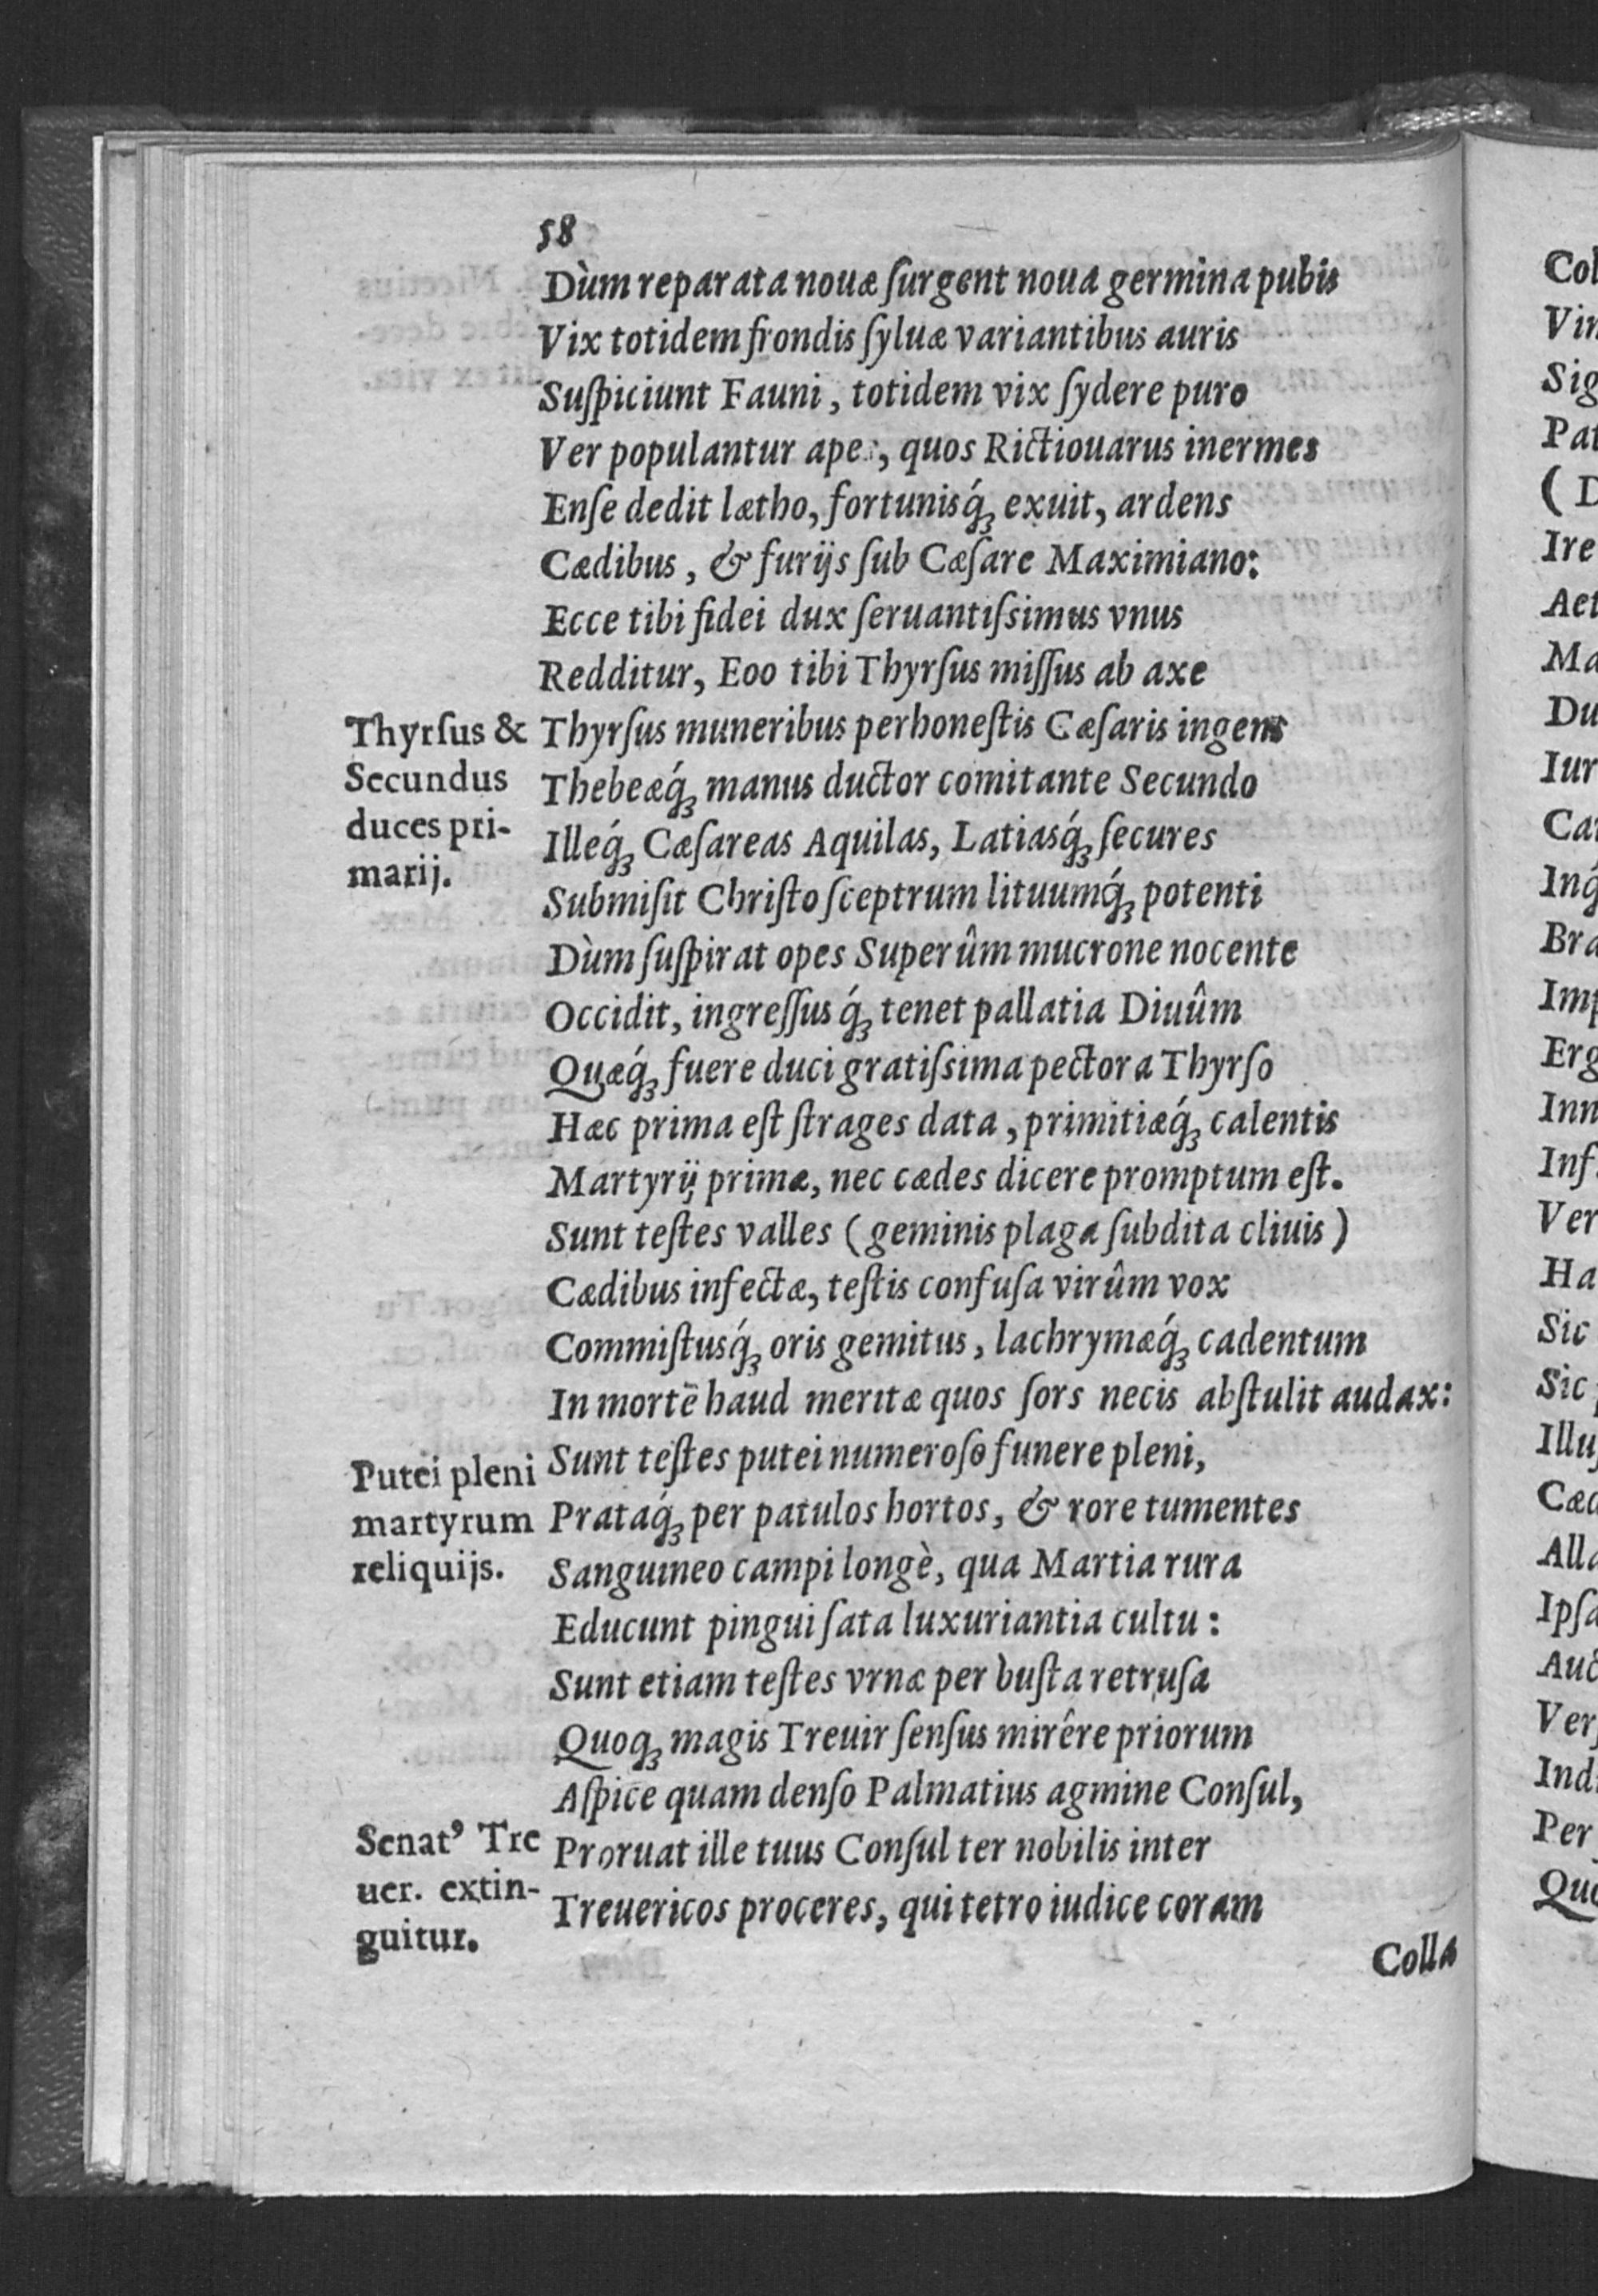 58
Dùm reparata nouæ ſurgent noua germina pubis
Vix totidem frondis ſyluæ variantibus auris
Suſpiciunt Fauni, totidem vix ſydere puro
Ver populantur apes, quos Rictiouarus inermes
Enſe dedit lætho, fortunisq́ꝫ exuit, ardens
Cædibus, & furijs ſub Cæſare Maximiano:
Ecce tibi fidei dux ſeruantiſsimus vnus
Redditur, Eoo tibi Thyrſus miſſus ab axe
Thyrſus &
Secundus
duces pri-
marij.
Thyrſus muneribus perhoneſtis Cæſaris ingens
Thebeæq́ꝫ manus ductor comitante Secundo
Illeq́ꝫ Cæſareas Aquilas, Latiasq́ꝫ ſecures
Submiſit Chriſto ſceptrum lituumq́ꝫ potenti
Dùm ſuſpirat opes Superûm mucrone nocente
Occidit, ingreſſusq́ꝫ tenet pallatia Diuûm
Quæq́ꝫ fuere duci gratiſsima pectora Thyrſo
Hæc prima eſt ſtrages data, primitiæq́ꝫ calentis
Martyrij primæ, nec cædes dicere promptum eſt.
Sunt teſtes valles (geminis plaga ſubdita cliuis)
Cædibus infectæ, teſtis confuſa virûm vox
Commiſtusq́ꝫ oris gemitus, lachrymæq́ꝫ cadentum
In mortē haud meritæ quos ſors necis abſtulit audax:
Putei pleni
martyrum
reliquijs.
Sunt teſtes putei numeroſo funere pleni,
Prataq́ꝫ per patulos hortos, & rore tumentes
Sanguineo campi longè, qua Martia rura
Educunt pingui ſata luxuriantia cultu:
Sunt etiam teſtes vrnæ per buſta retruſa
Quoqꝫ magis Treuir ſenſus mirêre priorum
Aſpice quam denſo Palmatius agmine Conſul,
Senatꝰ Tre
uer. extin-
guitur.
Proruat ille tuus Conſul ter nobilis inter
Treuericos proceres, qui tetro iudice coram
Colla